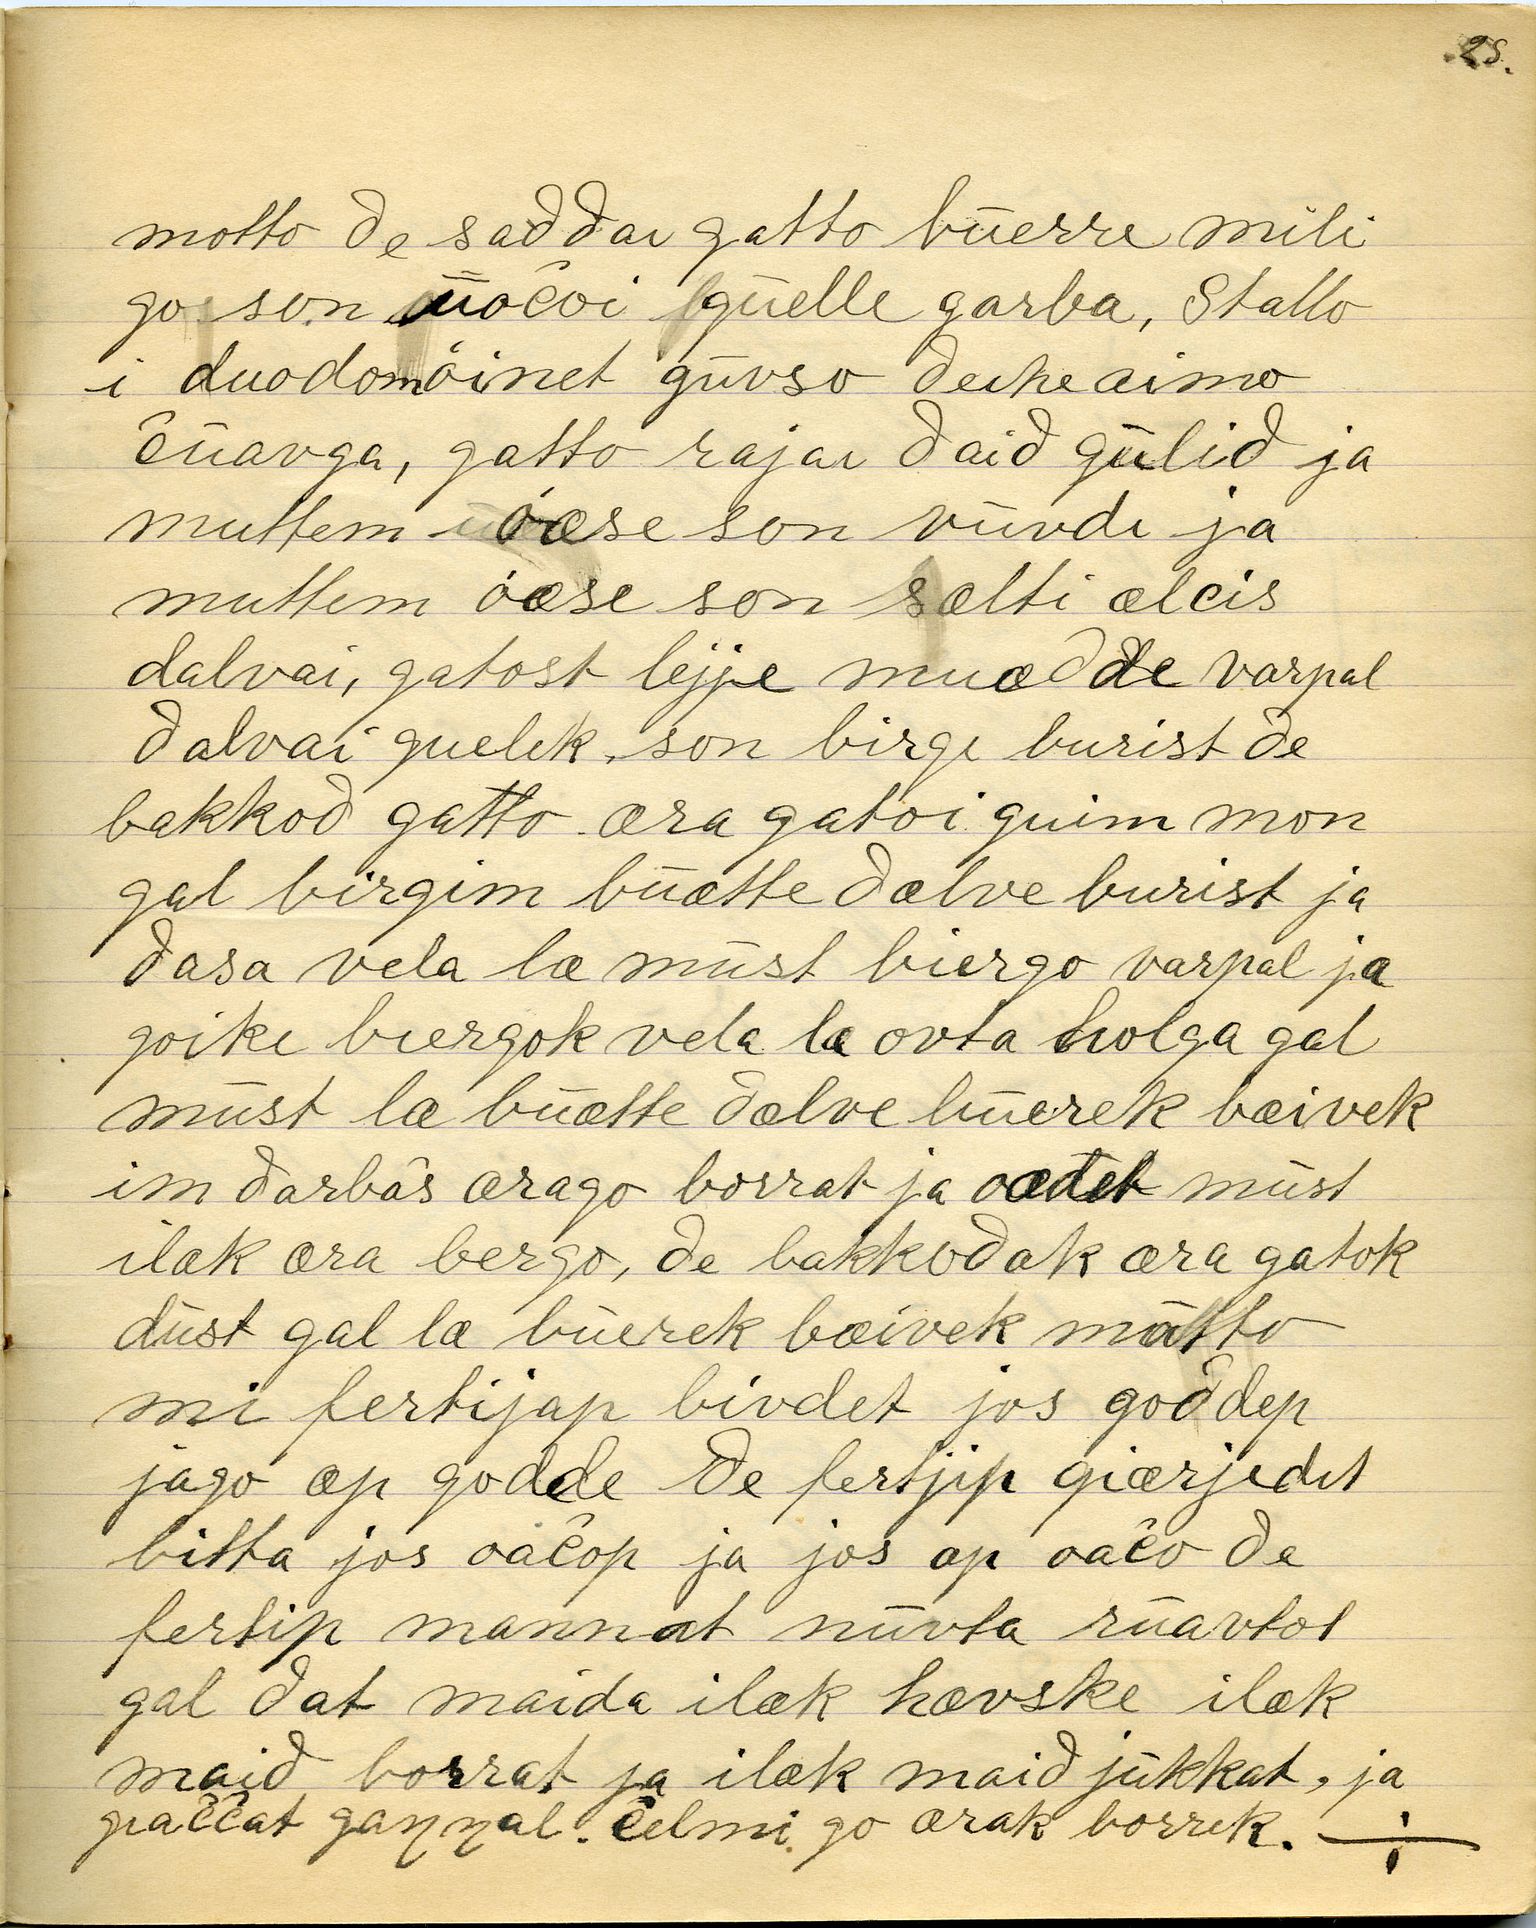 25.
motto de saddai gatto būerre mili
go son ūočoi gūelle garba, Stallo
i duodomöinet gūvso deihe aimo
čūavga, gatto rajai đaiđ gūliđ ja
muttem oæse son vūvdi ja
muttem oæse son sælti ælcis
dalvai, gatost lejje muædde varpal
đalvai guelek, son birgi burist đe
bakkođ gatto æra gatoi guim mon
gal birgim būætte đælve burist ja
đasa vela læ mūst biergo varpal ja
goike biergok vela la ovta holga gal
mūst læ būætte đælve būerek bæivek
im đarbâs ærago borrat ja oađet mūst
ilæk æra bergo, đe bakkođak æra gatok
dūst gal læ būerek bæivek mātto
mi fertijap bivdet jos gođdep
jago æp godde đe fertjip giærjedit
bitta jos oačop ja jos æp oačo đe
fertip mannat nūvta rūavtot
gal đat maida ilæk hævske ilæk
maiđ borrat ja ilæk maiđ jūkkat, ja
giaččat gaŋŋal čelmi go ærak borrek.